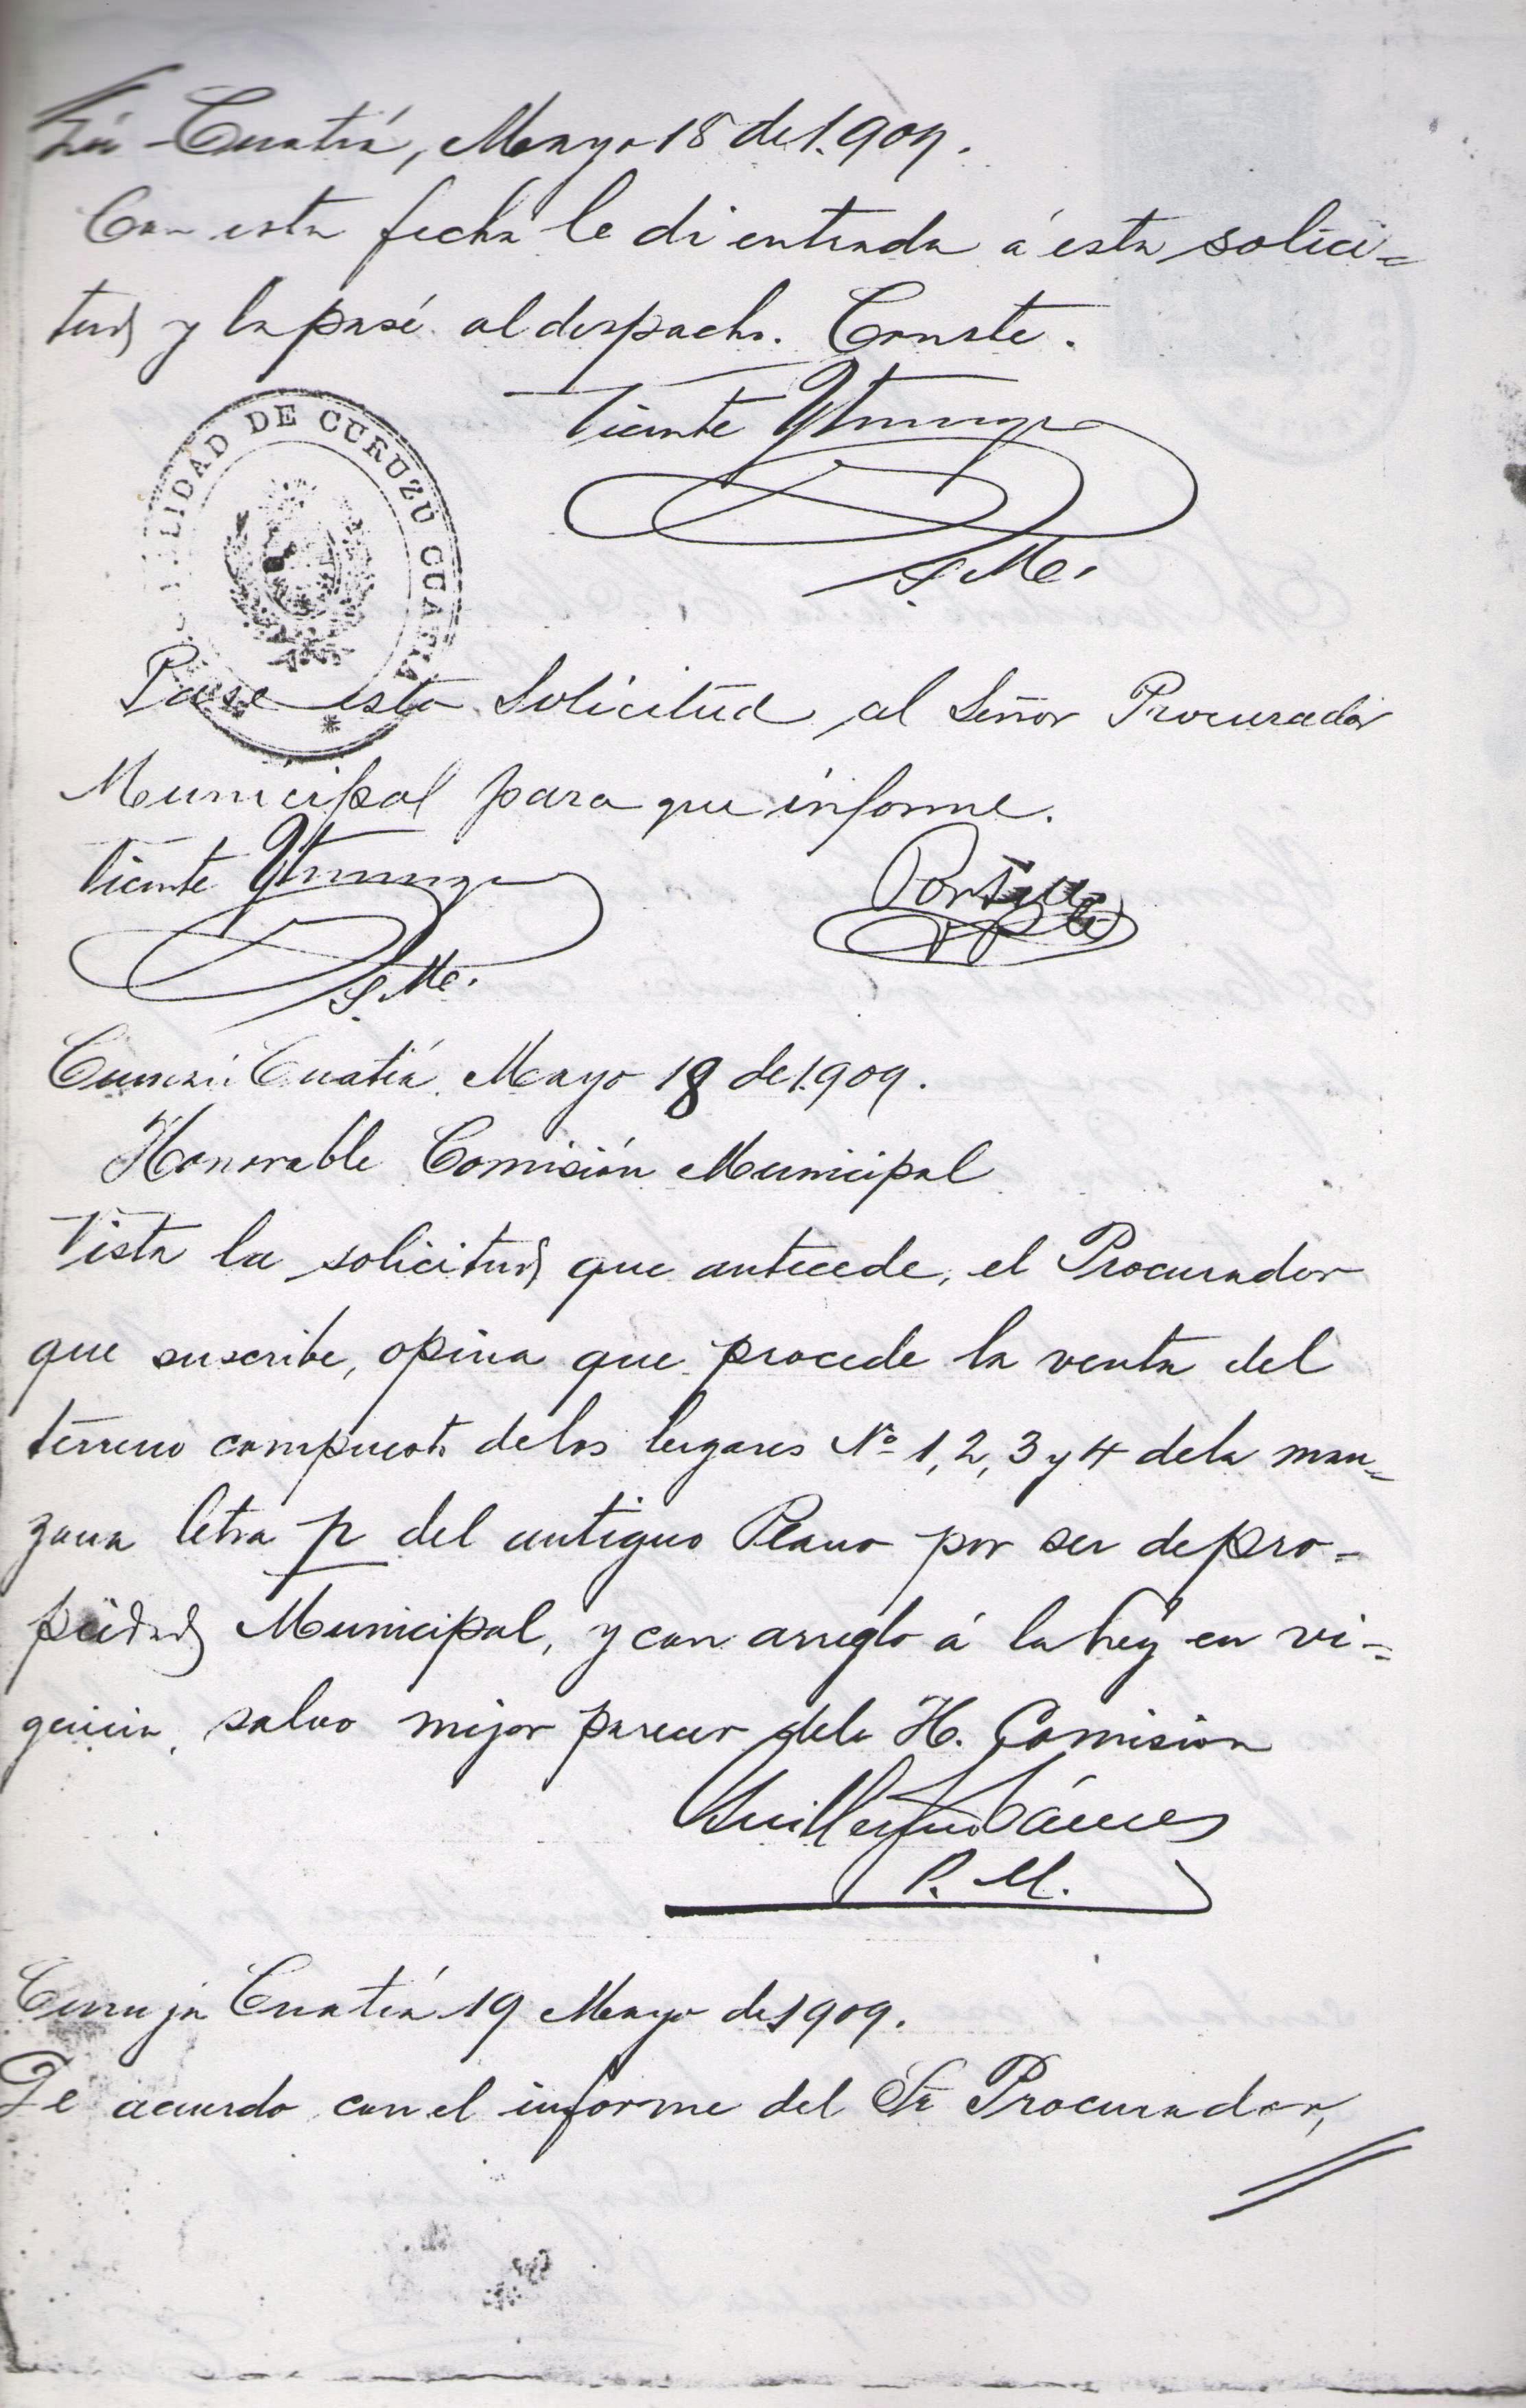 zú-Cuatiá, Mayo 18 de 1.909.
Con esta fecha le di entrada á esta solici=
tud y la pasé al despacho. Conste.
Vicente
S. M.
LIDAD DE CURUZÚ CUATIÁ
Pase esta Solicitud al Señor Procurador
Municipal para que informe.
Vicente
S. M.
Curuzú Cuatiá Mayo 18 de 1.909.
Honorable Comisión Municipal
Vista la solicitud que antecede, el Procurador
que suscribe, opina que procede la venta del
terreno compuesto de los lugares Nº 1, 2, 3 y 4 de la man=
zana letra p del antiguo Plano por ser de pro=
piedad Municipal, y con arreglo á la ley en vi=
gencia, salvo mejor parecer de la H. Comision
Guillermo
P. M.
Curuzú Cuatiá 19 Mayo de 1909.
De acuerdo con el informe del Sr Procurador,